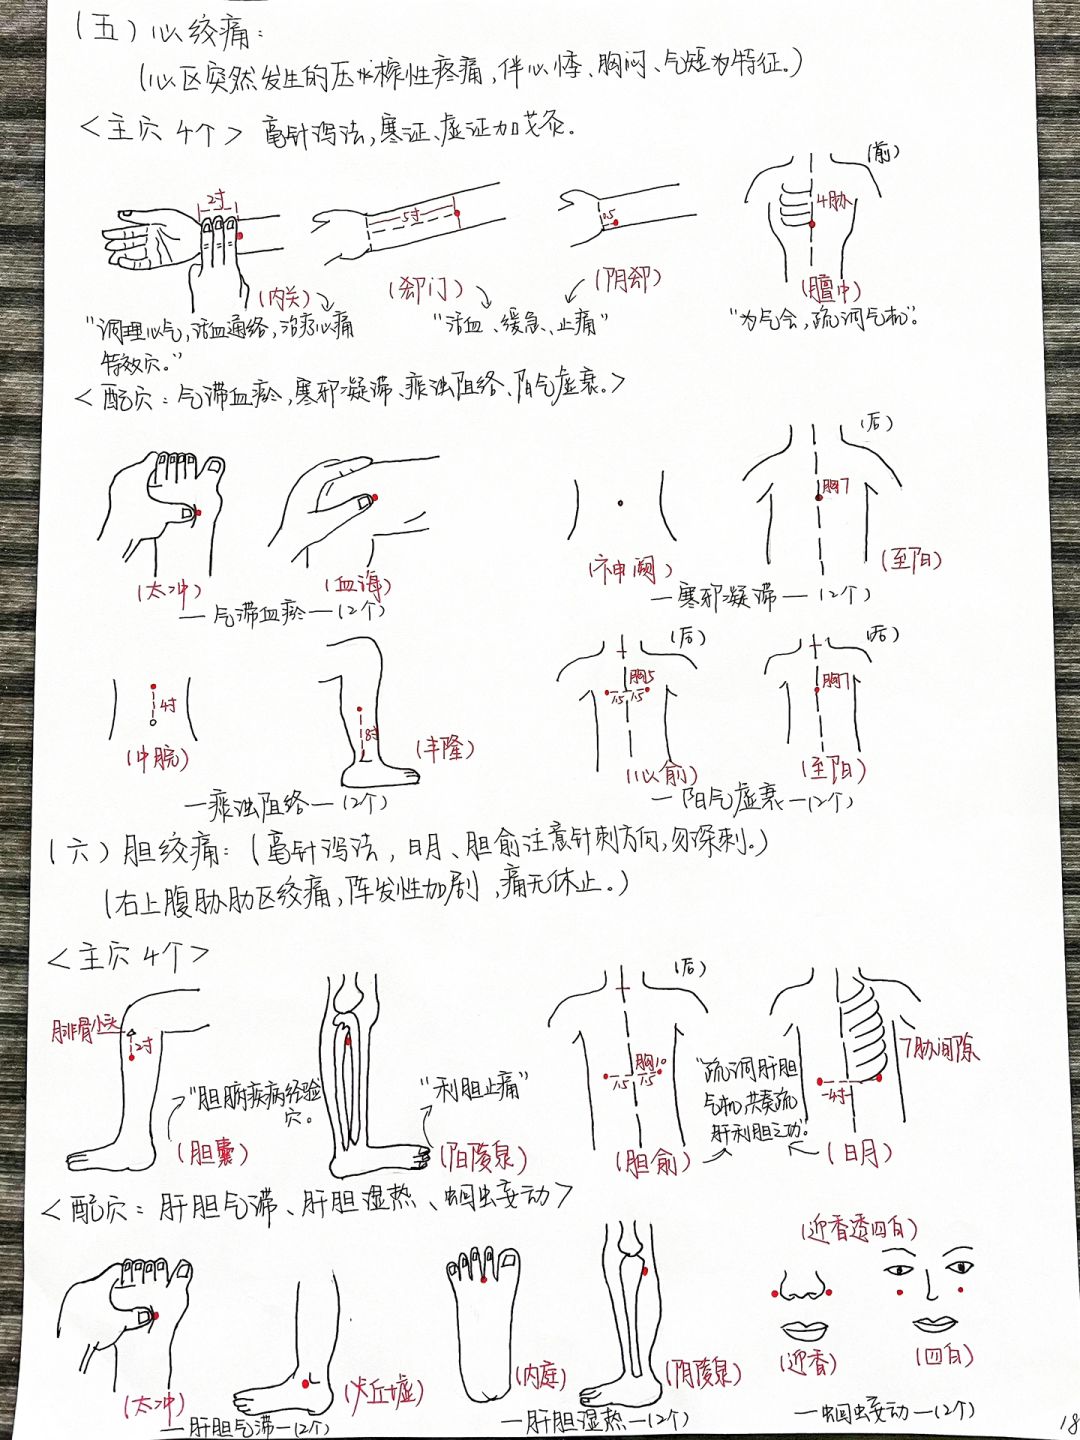 (五)心绞痛:
(心区突然发生的压榨性疼痛,伴心悸、胸闷、气短为特征。)
<主穴4个> 毫针泻法,寒证、虚证加艾灸.
(前)
2寸
5寸
0.5
4肋
(内关)
(郄门)
(阴郄)
(膻中)
"调理心气,活血通络,治疗心痛
特效穴。"
"活血、缓急、止痛"
"为气会,疏调气机"。
<配穴:气滞血瘀,寒邪凝滞、痰浊阻络、阳气虚衰。>
(后)
胸7
(太冲)
(血海)
(神阙)
(至阳)
—气滞血瘀—(2个)
—寒邪凝滞—(2个)
(后)
(后)
4寸
8寸
胸5
1.5
1.5
胸7
(中脘)
(丰隆)
(心俞)
(至阳)
—痰浊阻络—(2个)
—阳气虚衰—(2个)
(六)胆绞痛:(毫针泻法,日月、胆俞注意针刺方向,勿深刺。)
(右上腹胁肋区绞痛,阵发性加剧,痛无休止。)
<主穴4个>
(后)
腓骨小头
2寸
胸10
1.5
1.5
7肋间隙
4寸
"胆腑疾病经验
穴。
"利胆止痛"
"疏调肝胆
气机,共奏疏
肝利胆之功"。
(胆囊)
(阳陵泉)
(胆俞)
(日月)
<配穴:肝胆气滞、肝胆湿热、蛔虫妄动>
(迎香透四白)
(太冲)
(丘墟)
(内庭)
(阴陵泉)
(迎香)
(四白)
—肝胆气滞—(2个)
—肝胆湿热—(2个)
—蛔虫妄动—(2个)
18